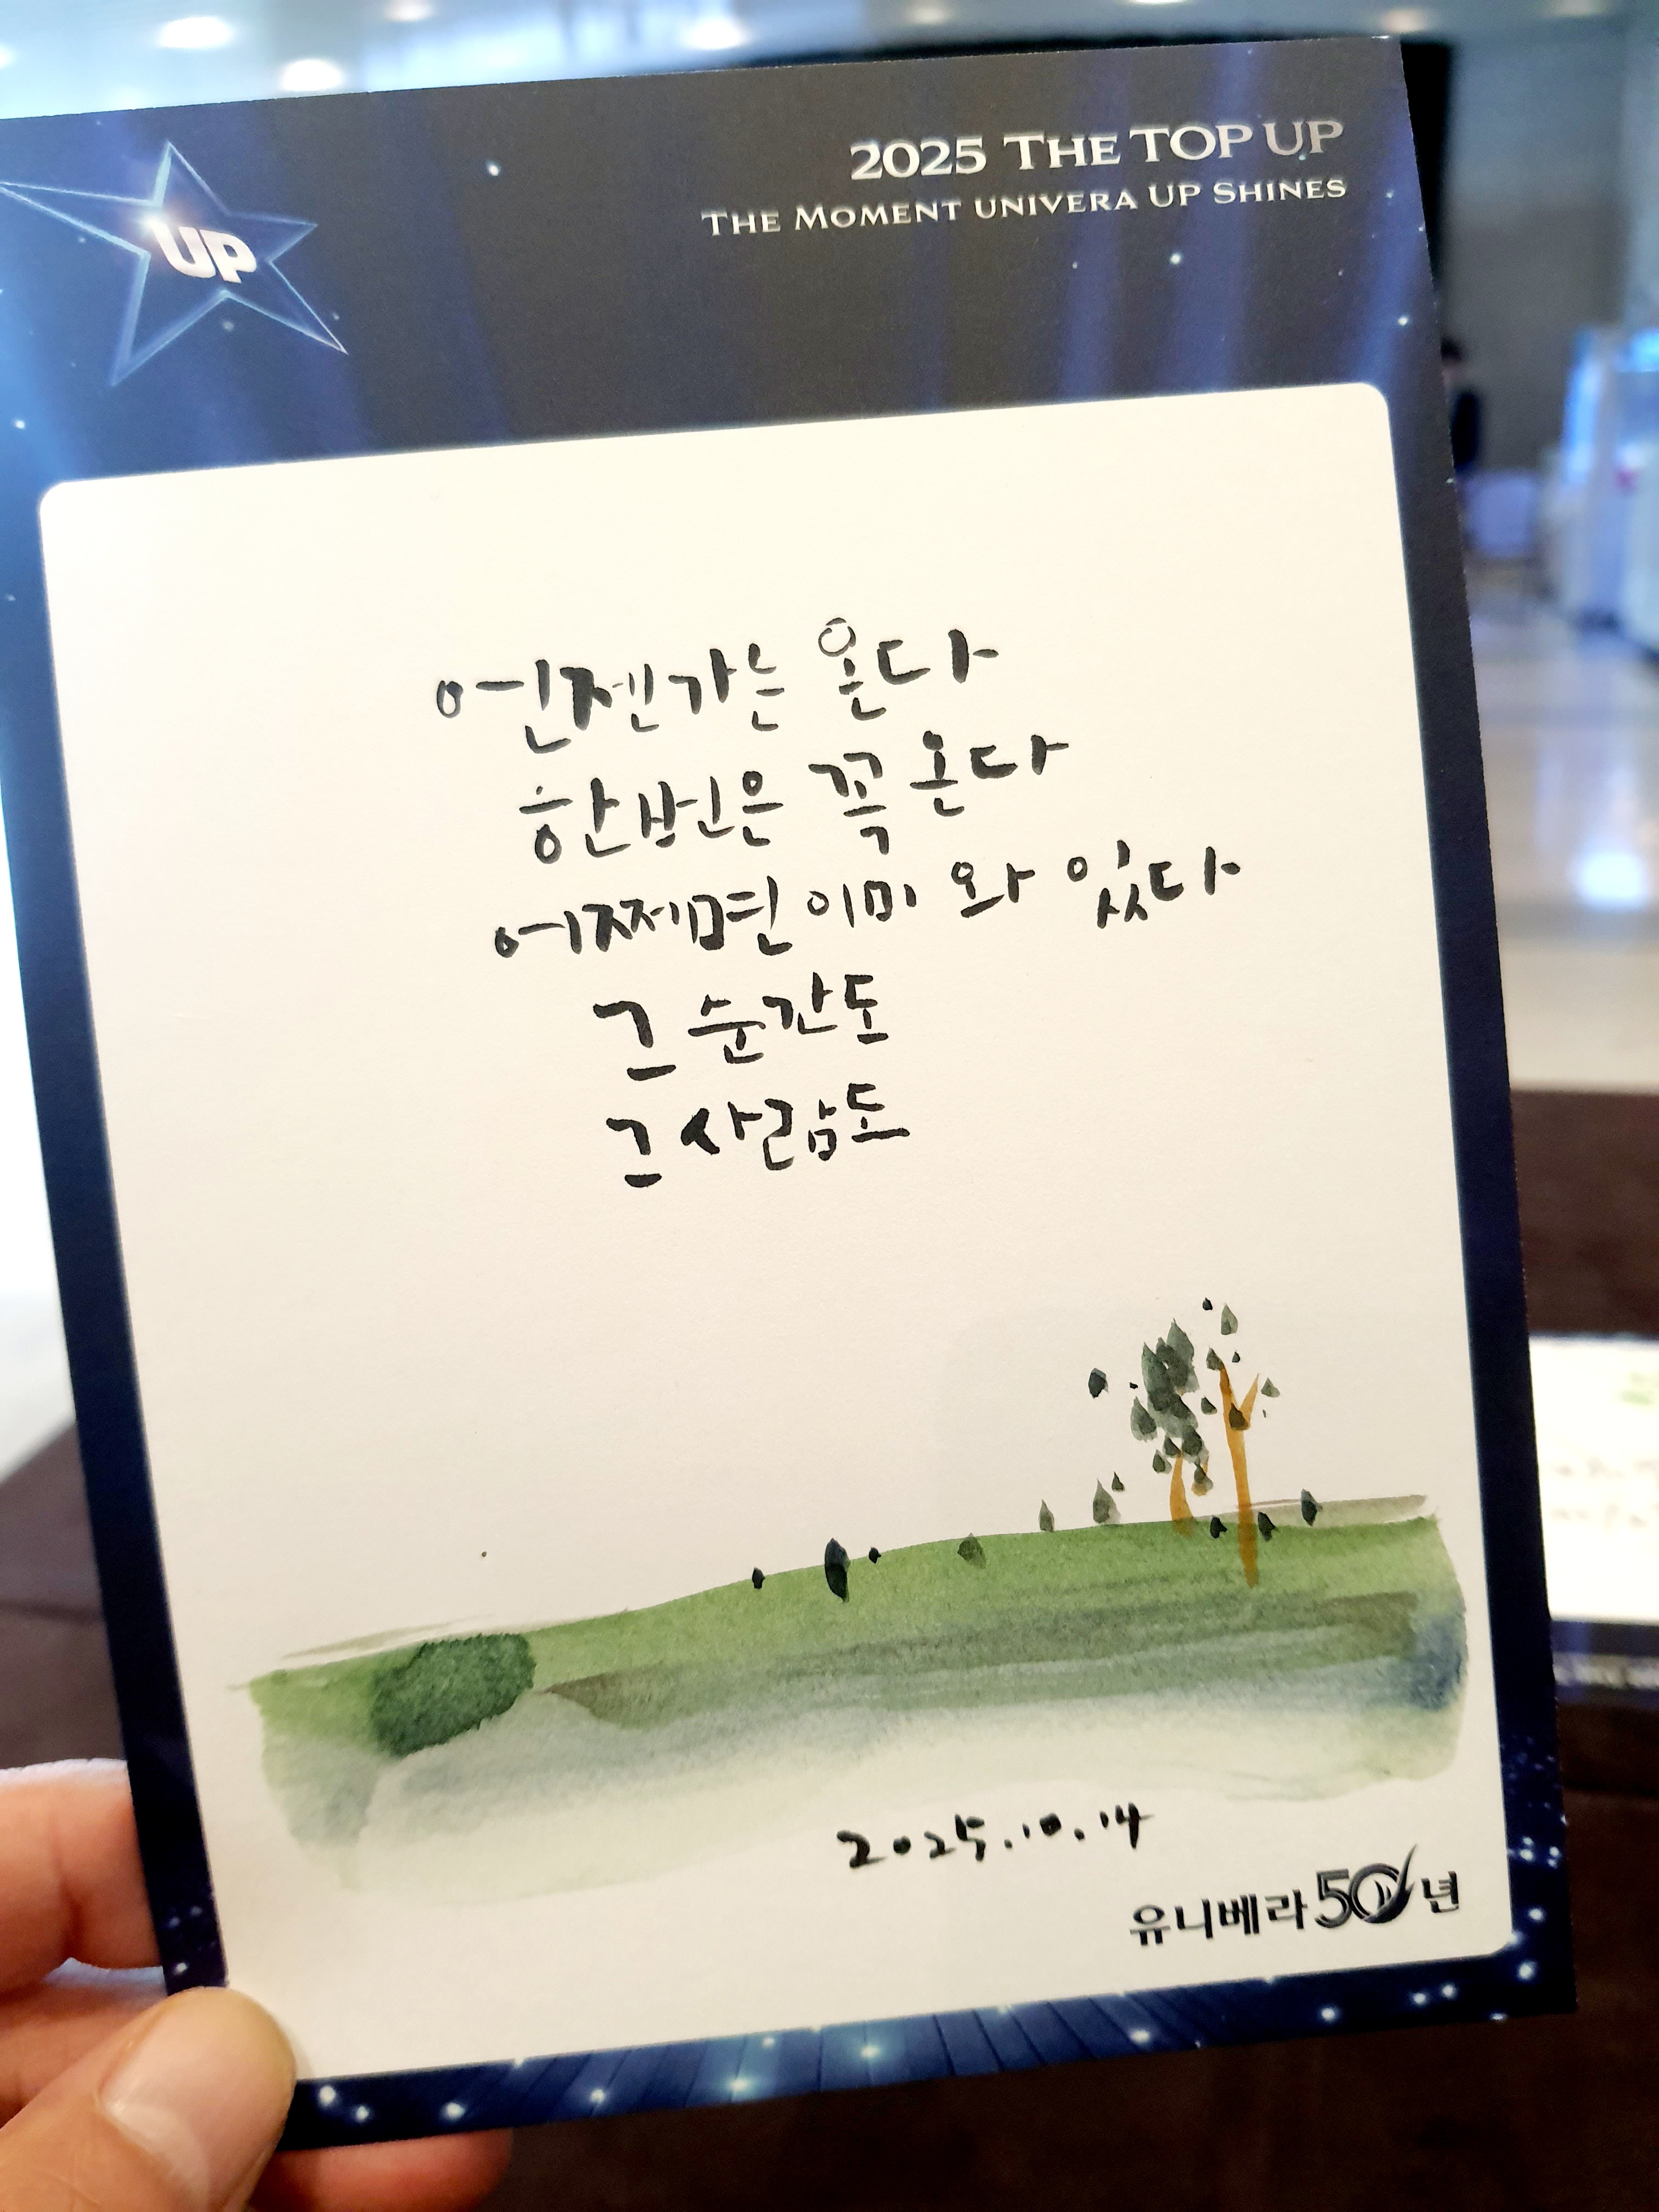 UP
2025 THE TOP UP
THE MOMENT UNIVERA UP SHINES
언젠가는 온다
한번은 꼭 온다
어쩌면 이미 와 있다
그 순간도
그 사람도
2025.10.14
유니베라 50년